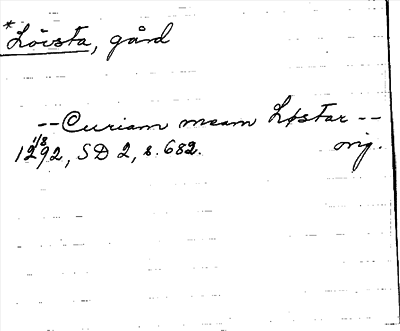 *Lövsta, gård
-- Curiam meam Løstar --
1292 1/8, SD 2, s. 682. orig.